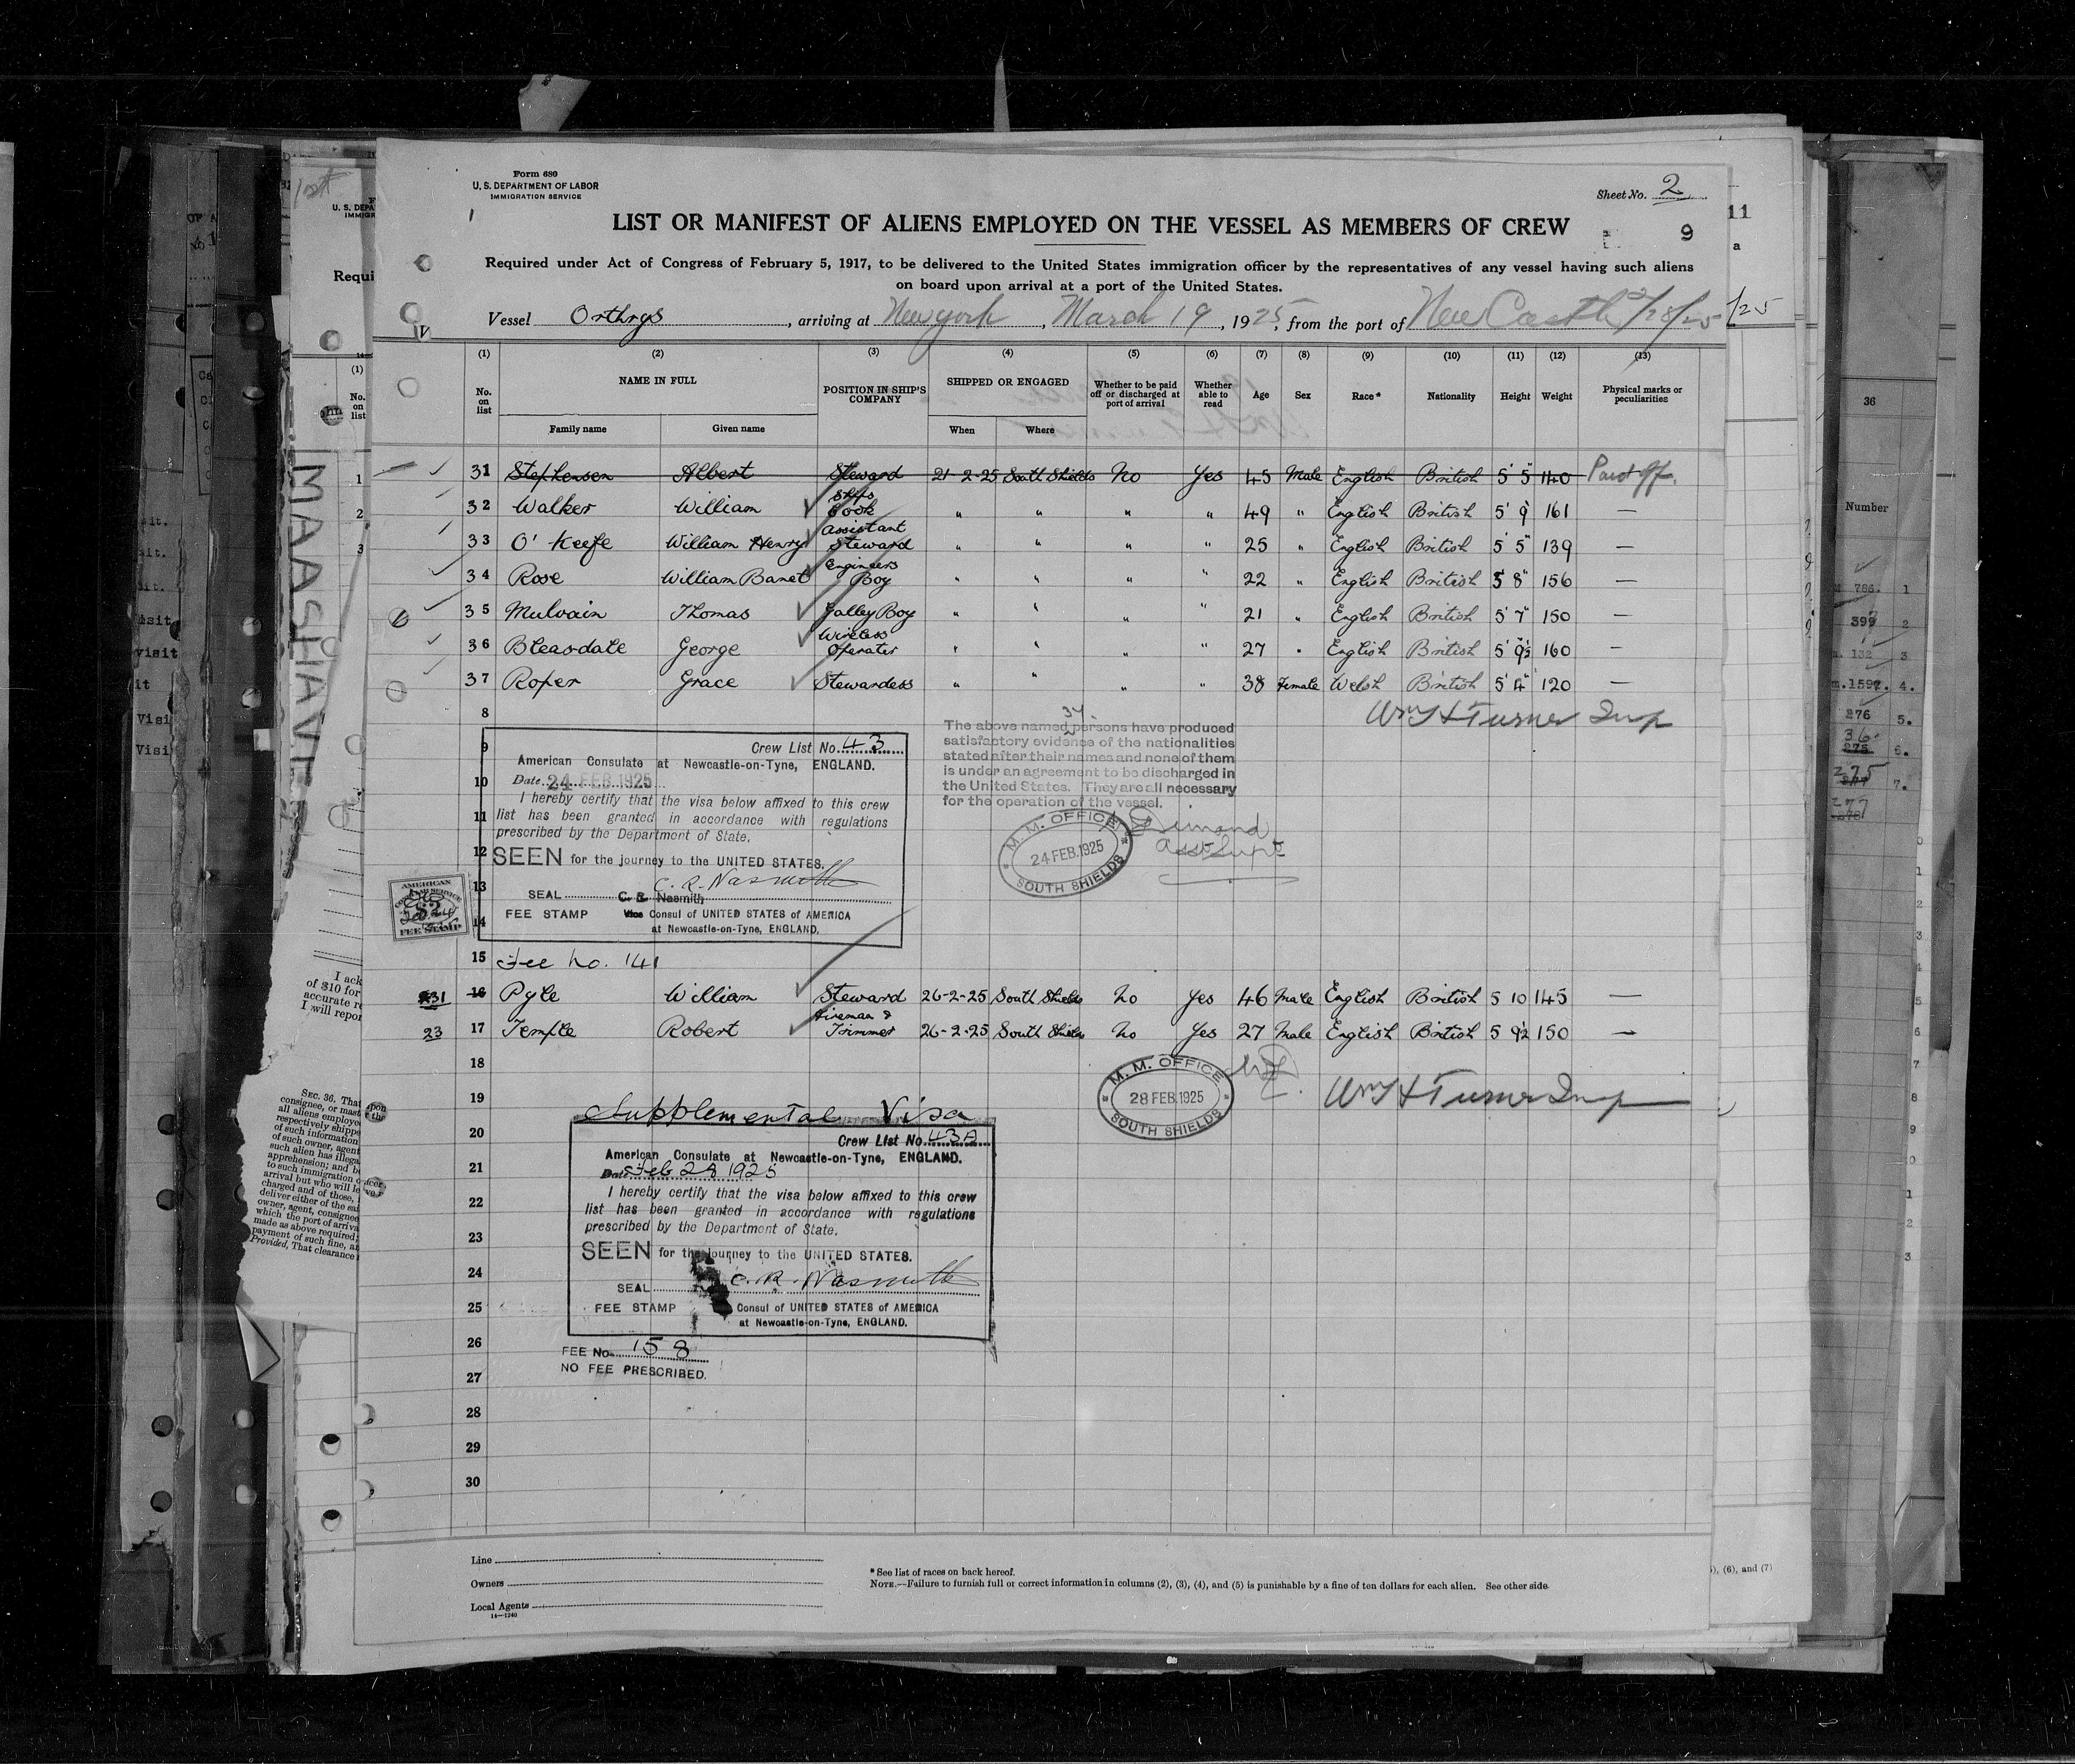 Form 680
U. S. DEPARTMENT OF LABOR
IMMIGRATION SERVICE
Sheet No. 2
LIST OR MANIFEST OF ALIENS EMPLOYED ON THE VESSEL AS MEMBERS OF CREW
9
11
Required under Act of Congress of February 5, 1917, to be delivered to the United States immigration officer by the representatives of any vessel having such aliens
on board upon arrival at a port of the United States.
Vessel Orthrys, arriving at New York, March 19, 1925, from the port of New Castle 2/28/25
(1) (2) (3) (4) (5) (6) (7) (8) (9) (10) (11) (12) (13)
No. on list
NAME IN FULL
Family name Given name
POSITION IN SHIP'S COMPANY
SHIPPED OR ENGAGED
When Where
Whether to be paid off or discharged at port of arrival
Whether able to read
Age Sex Race* Nationality Height Weight
Physical marks or peculiarities
31 Stephenson Albert Steward 21-2-25 South Shields No Yes 45 Male English British 5' 5" 140 Paid off.
32 Walker William Ships Cook " " " " 49 " English British 5' 9" 161 —
33 O'Keefe William Henry Assistant Steward " " " " 25 " English British 5' 5" 139 —
34 Rose William Banet Engineers Boy " " " " 22 " English British 5' 8" 156 —
6 35 Mulvain Thomas Galley Boy " " " " 21 " English British 5' 7" 150 —
36 Bleasdale George Wireless Operater " " " " 27 " English British 5' 9½" 160 —
37 Roper Grace Stewardess " " " " 38 Female Welsh British 5' 4" 120 —
8
Wm H Turner Insp
37
The above named persons have produced
satisfactory evidence of the nationalities
stated after their names and none of them
is under an agreement to be discharged in
the United States. They are all necessary
for the operation of the vessel.
Asst Supt
M. M. OFFICE
24 FEB. 1925
SOUTH SHIELDS
9
Crew List No. 43
American Consulate at Newcastle-on-Tyne, ENGLAND.
10
Date 24 FEB. 1925
I hereby certify that the visa below affixed to this crew
11
list has been granted in accordance with regulations
prescribed by the Department of State.
12
SEEN for the journey to the UNITED STATES.
C. R. Nasmith
13
SEAL C. R. Nasmith
14
FEE STAMP Vice Consul of UNITED STATES of AMERICA
at Newcastle-on-Tyne, ENGLAND.
AMERICAN
$2
FEE STAMP
15 Fee No. 141
31 16 Pyle William Steward 26-2-25 South Shields No Yes 46 Male English British 5 10 145 —
23 17 Temple Robert Fireman & Trimmer 26-2-25 South Shields No Yes 27 Male English British 5 9½ 150 —
18
M. M. OFFICE
28 FEB. 1925
SOUTH SHIELDS
Wm H Turner Insp
19
Supplemental Visa
20
Crew List No. 43A
American Consulate at Newcastle-on-Tyne, ENGLAND.
21
Date Feb 28 1925
I hereby certify that the visa below affixed to this crew
22
list has been granted in accordance with regulations
prescribed by the Department of State.
23
SEEN for the journey to the UNITED STATES.
24
C. R. Nasmith
SEAL
25
FEE STAMP Consul of UNITED STATES of AMERICA
at Newcastle-on-Tyne, ENGLAND.
26
FEE No. 158
27
NO FEE PRESCRIBED.
28
29
30
Line
Owners
Local Agents
14—1240
* See list of races on back hereof.
NOTE.—Failure to furnish full or correct information in columns (2), (3), (4), and (5) is punishable by a fine of ten dollars for each alien. See other side.
(6), and (7)
36
Number